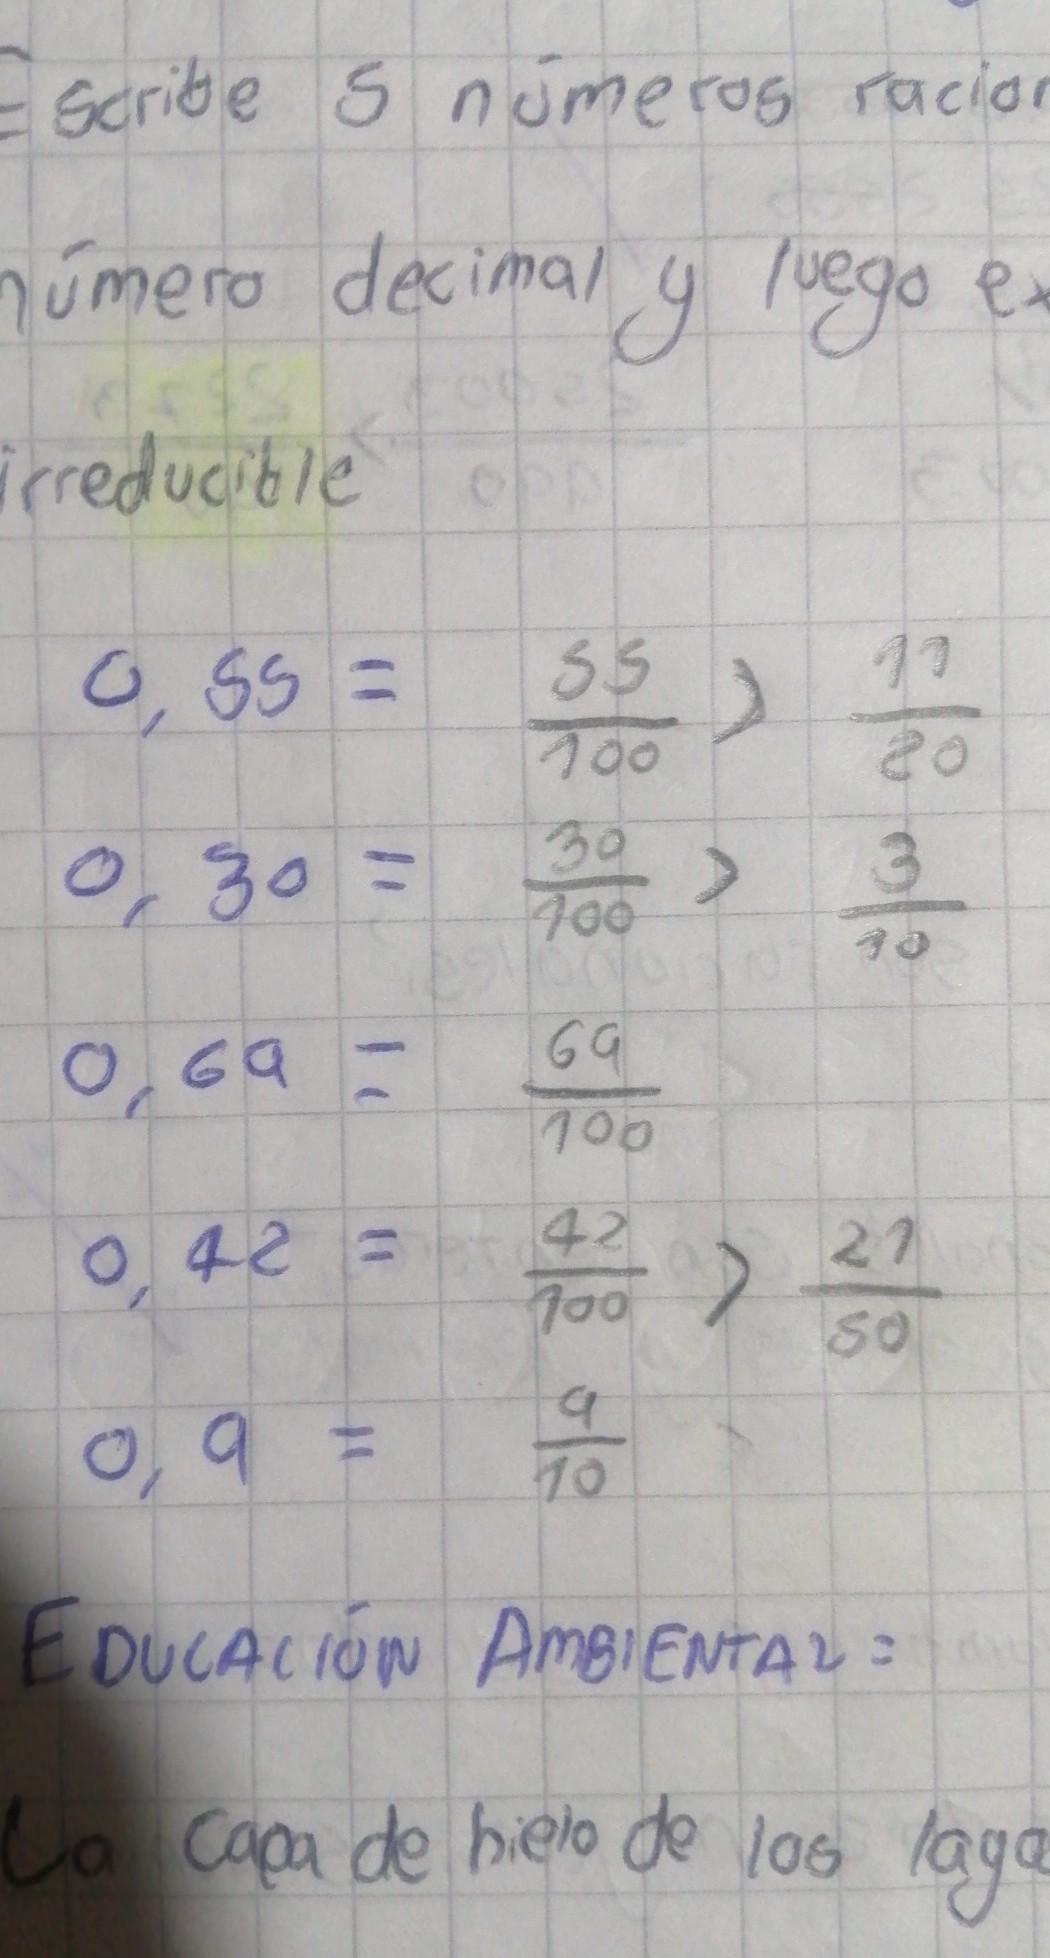 Escribe 5 números racion
número decimal y luego ex
irreducible
0,55 = 55/100 > 11/20
0,30 = 30/100 > 3/10
0,69 = 69/100
0,42 = 42/100 > 21/50
0,9 = 9/10
EDUCACIÓN AMBIENTAL=
La capa de hielo de los lago